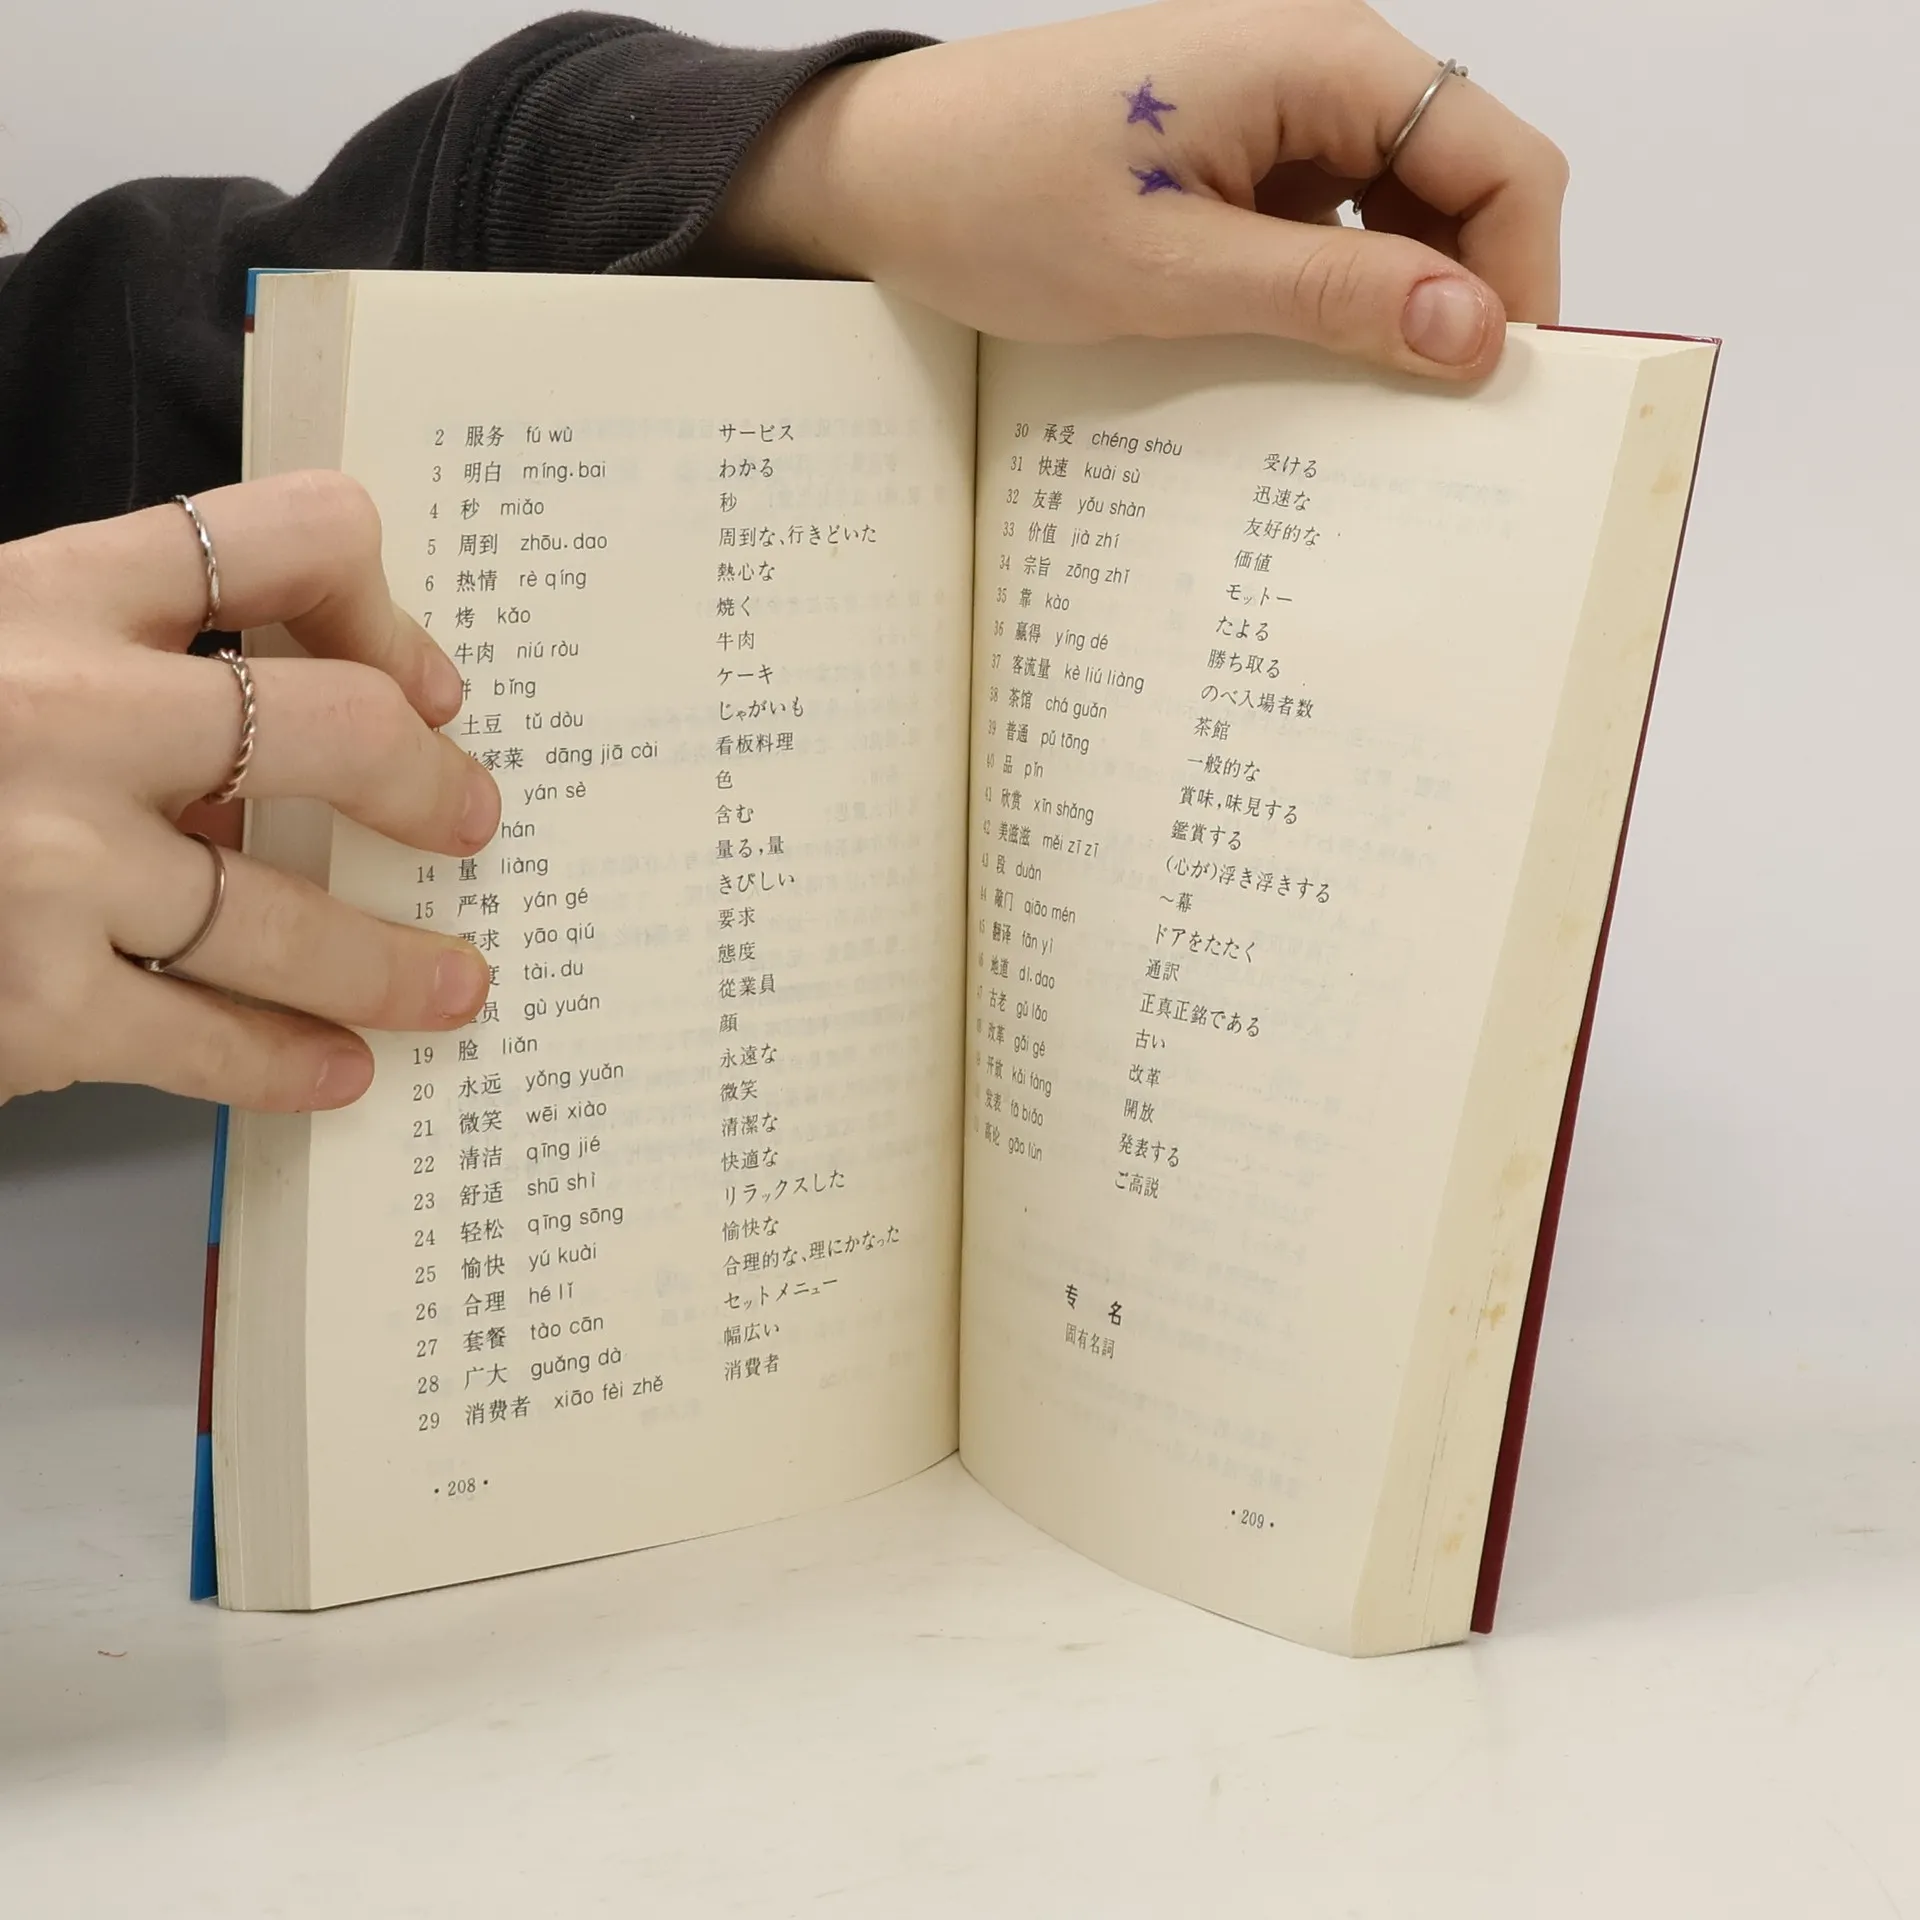 2 服务 fú wù サービス
3 明白 míng.bai わかる
4 秒 miǎo 秒
5 周到 zhōu.dao 周到な、行きどいた
6 热情 rè qíng 熱心な
7 烤 kǎo 焼く
牛肉 niú ròu 牛肉
bǐng ケーキ
土豆 tǔ dòu じゃがいも
家菜 dāng jiā cài 看板料理
yán sè 色
hán 含む
14 量 liàng 量る,量
15 严格 yán gé きびしい
要求 yāo qiú 要求
度 tài.du 態度
员 gù yuán 從業員
19 脸 liǎn 顔
20 永远 yǒng yuǎn 永遠な
21 微笑 wēi xiào 微笑
22 清洁 qīng jié 清潔な
23 舒适 shū shì 快適な
24 轻松 qīng sōng リラックスした
25 愉快 yú kuài 愉快な
26 合理 hé lǐ 合理的な、理にかなった
27 套餐 tào cān セットメニュー
28 广大 guǎng dà 幅広い
29 消费者 xiāo fèi zhě 消費者
·208·
30 承受 chéng shòu 受ける
31 快速 kuài sù 迅速な
32 友善 yǒu shàn 友好的な
33 价值 jià zhí 価値
34 宗旨 zōng zhǐ モットー
35 靠 kào たよる
36 赢得 yíng dé 勝ち取る
37 客流量 kè liú liàng のべ入場者数
38 茶馆 chá guǎn 茶館
39 普通 pǔ tōng 一般的な
40 品 pǐn 賞味,味見する
41 欣赏 xīn shǎng 鑑賞する
42 美滋滋 měi zī zī (心が)浮き浮きする
43 段 duàn ～幕
44 敲门 qiāo mén ドアをたたく
45 翻译 fān yì 通訳
46 地道 dì.dao 正真正銘である
47 古老 gǔ lǎo 古い
改革 gǎi gé 改革
开放 kāi fàng 開放
发表 fā biǎo 発表する
高论 gāo lùn ご高説
专 名
固有名詞
·209·